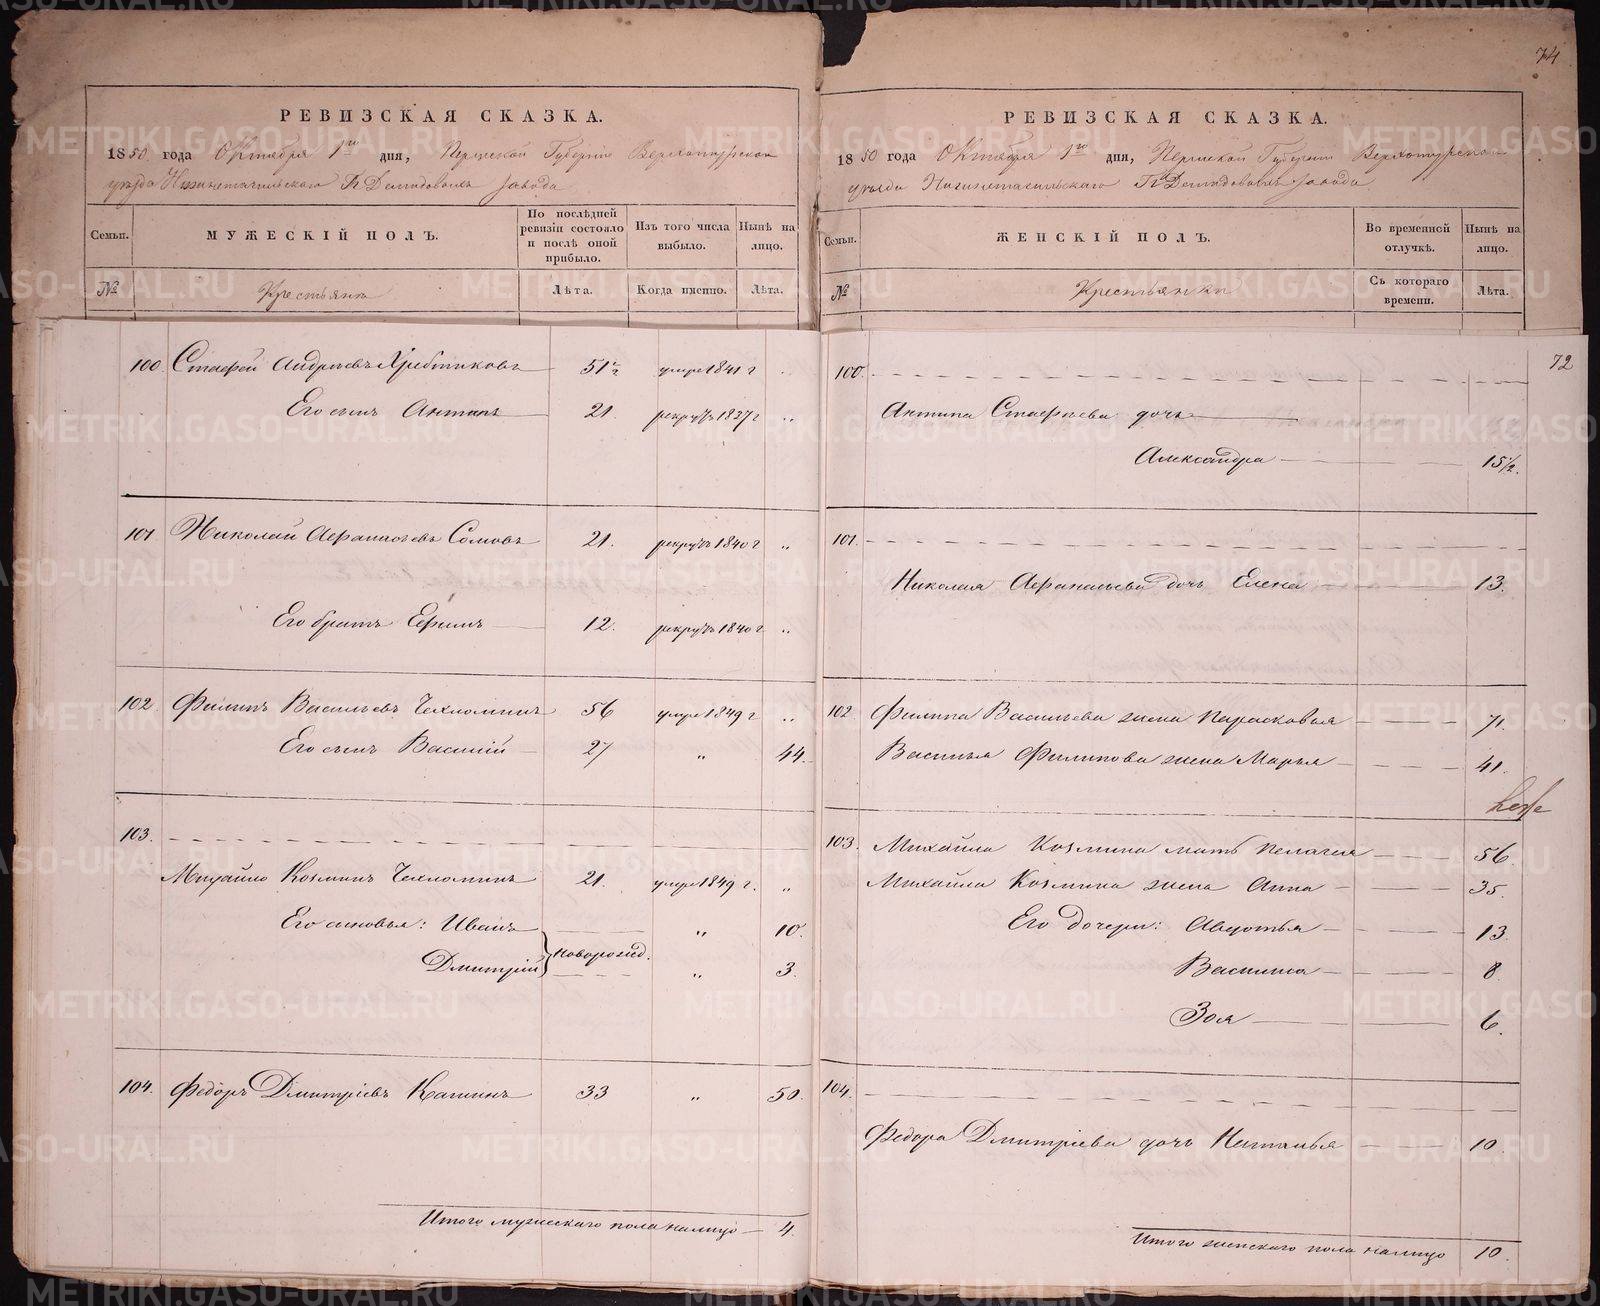 74
РЕВИЗСКАЯ СКАЗКА.
1850 года Октября 1го дня, Пермской Губернии Верхотурскаго
уезда Нижнетагильскаго Гг. Демидовыхъ завода
Семьи. МУЖЕСКІЙ ПОЛЪ. По послѣдней ревизіи состояло и послѣ оной прибыло. Изъ того числа выбыло. Нынѣ на лицо.
№ Крестьяне Лѣта. Когда именно. Лѣта.
100. Стафей Андреевъ 51½ умре 1841 г „
Его сынъ Антипъ 21. рекрутъ 1837 г „
101. Николай Афанасьевъ Сомовъ 21. рекрутъ 1840 г „
Его братъ Ефимъ 12. рекрутъ 1840 г „
102. Филипъ Васильевъ Чехломинъ 56 умре 1849 г „
Его сынъ Василій 27 „ 44.
103.
Михайло Козминъ Чехломинъ 21. умре 1849 г. „
Его сыновья: Иванъ „ 10.
новорожд.
Дмитрій „ 3.
104. Федоръ Дмитріевъ Кашинъ 33 „ 50.
Итого мужескаго пола налицо 4.
РЕВИЗСКАЯ СКАЗКА.
1850 года Октября 1го дня, Пермской Губернии Верхотурскаго
уезда Нижнетагильскаго Гг. Демидовыхъ завода
Семьи. ЖЕНСКІЙ ПОЛЪ. Во временной отлучкѣ. Нынѣ на лицо.
№ Крестьянки Съ котораго времени. Лѣта.
72
100.
Антипа Стафеева дочь
Александра 15½.
101.
Николая Афанасьева дочь Елена 13.
102. Филипа Васильева жена Парасковья 71.
Василья Филипова жена Марья 41.
103. Михайла Козмина мать Пелагея 56.
Михайла Козмина жена Анна 35.
Его дочери: Августья 13.
Василиса 8.
Зоя 6.
104.
Федора Дмитріева дочь Наталья 10.
Итого женскаго пола налицо 10.
METRIKI.GASO-URAL.RU